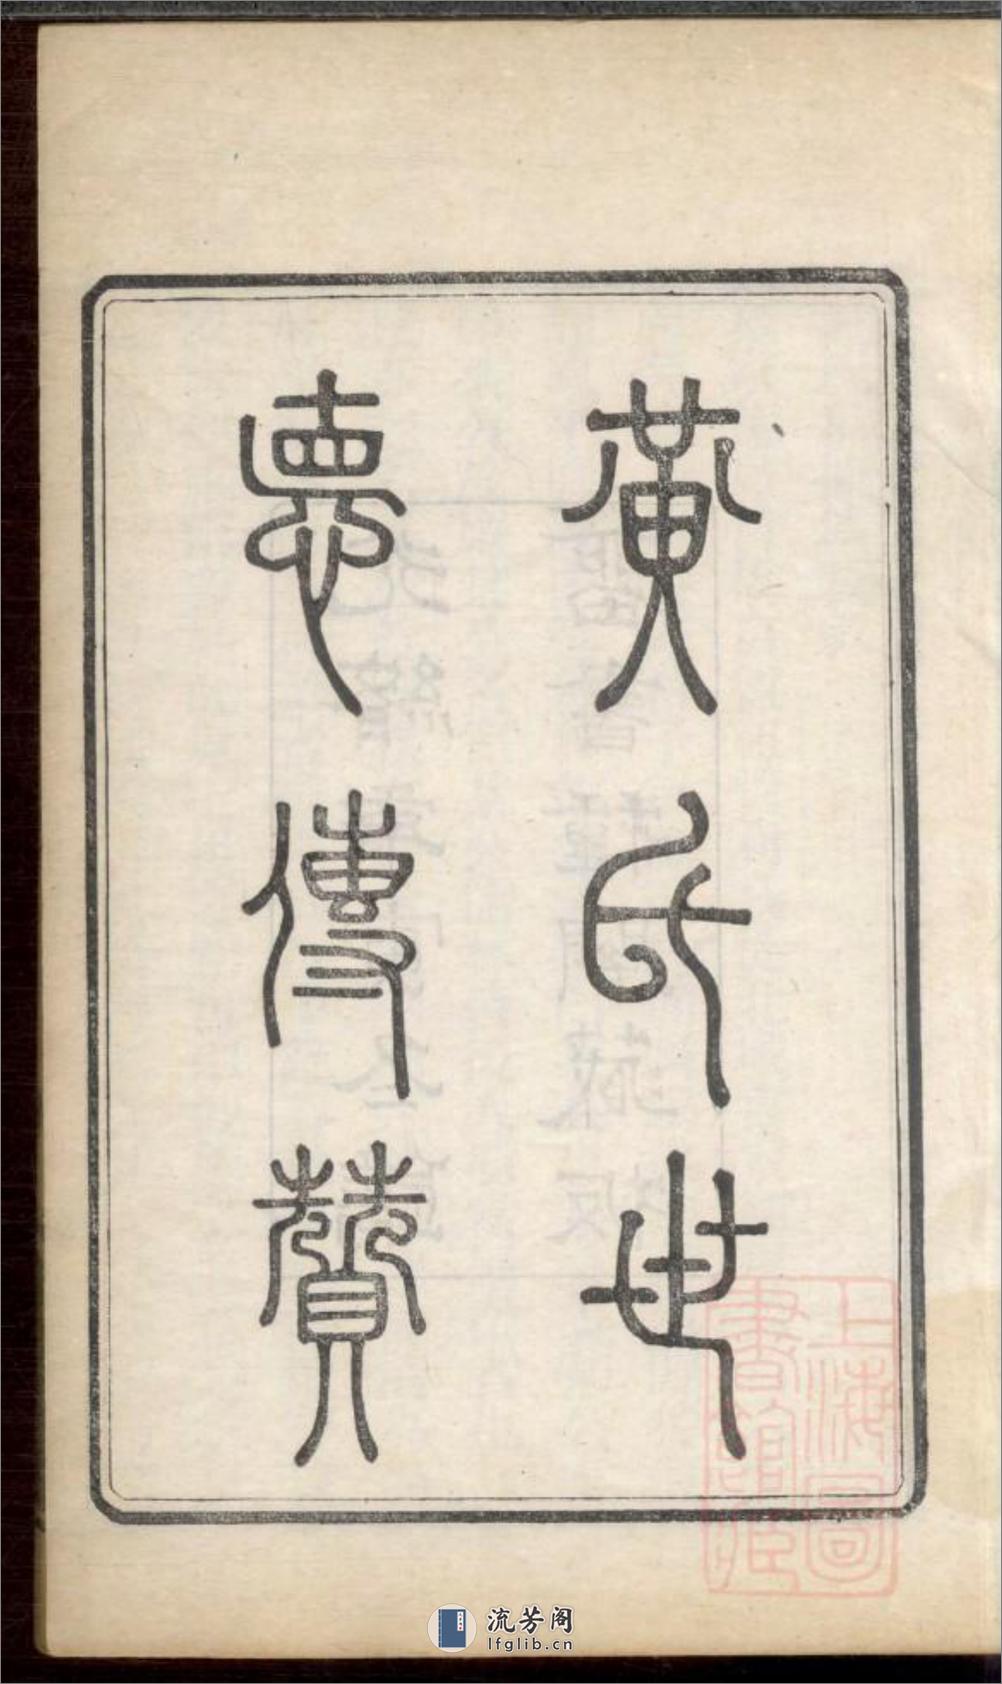 黃氏世
悳傳贊
上海圖
書館藏
流芳阁
lfglib.cn